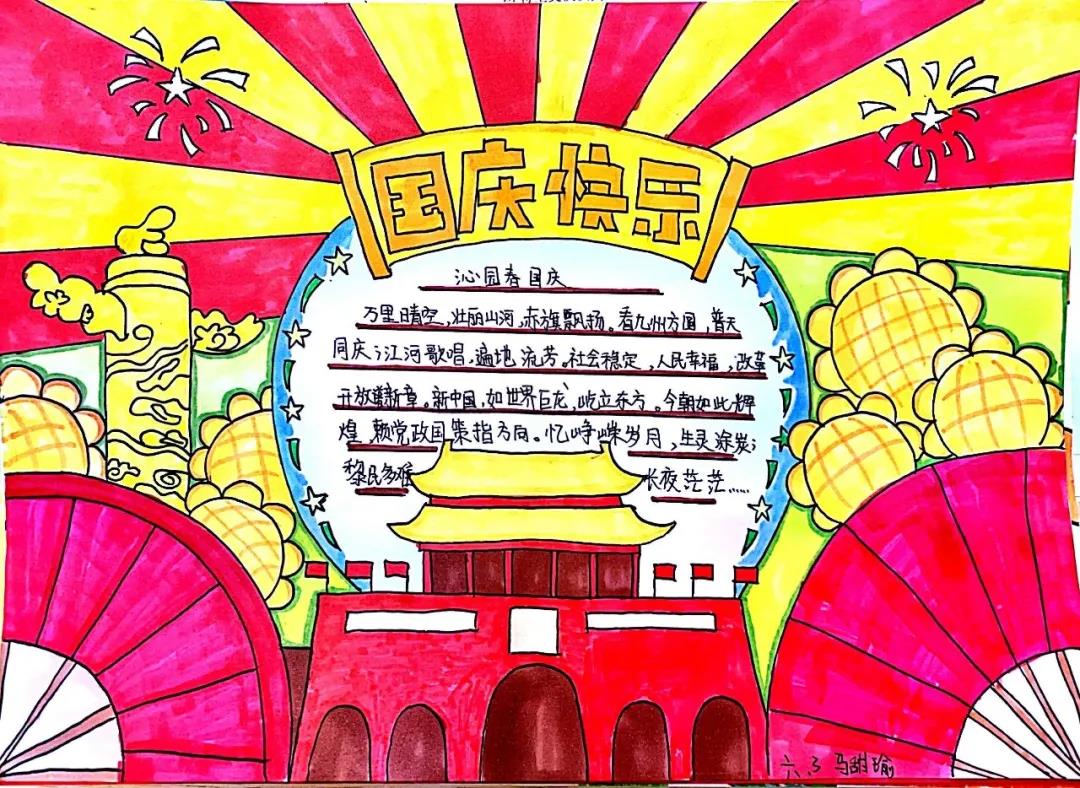 国庆快乐
沁园春国庆
万里晴空,壮丽山河,赤旗飘扬。看九州方圆,普天
同庆;江河歌唱,遍地流芳。社会稳定,人民幸福,改革
开放谱新章。新中国,如世界巨龙,屹立东方。今朝如此辉
煌 赖党政国策指方向。忆峥嵘岁月,生灵涂炭;
黎民多难 长夜茫茫……
六.3 马甜瑜